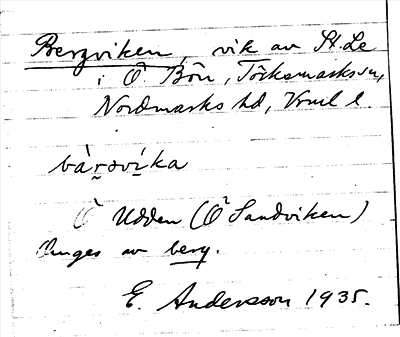 Bergviken, vik av St. Le
i Ö Bön, Töcksmarks sn,
Nordmarks hd, Vrml l.
bàr̯əvíka
Ö Udden (Ö Sandviken)
Omges av berg.
E. Andersson 1935.